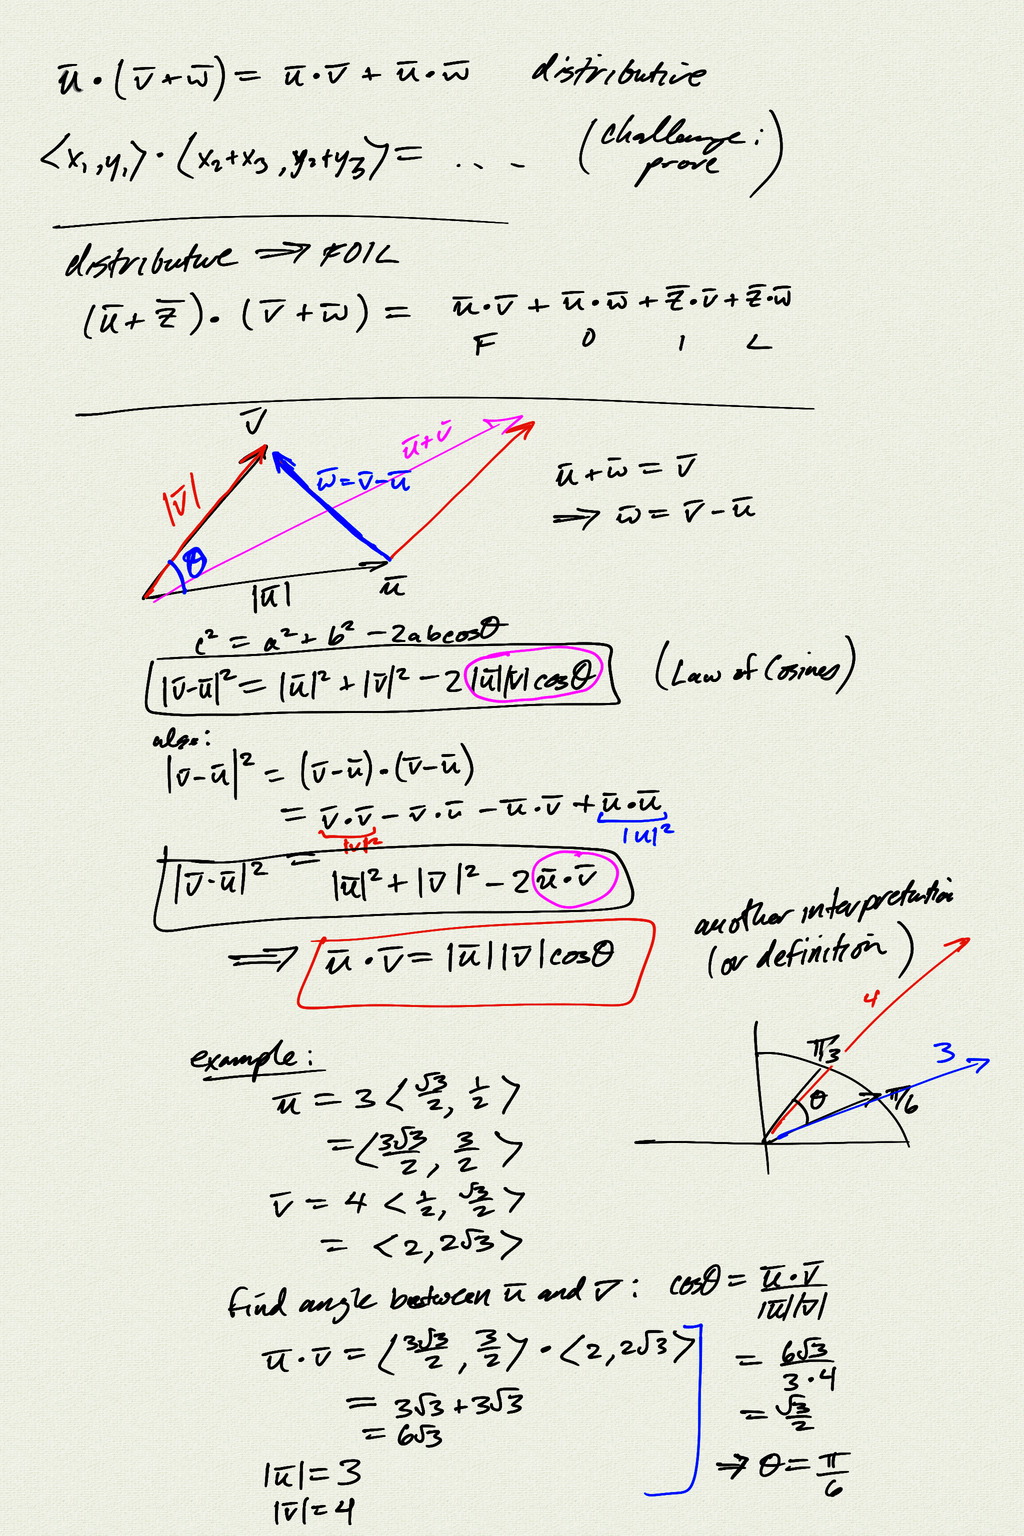 ū·(v̄+w̄)= ū·v̄+ū·w̄ distributive
<x₁,y₁>·<x₂+x₃,y₂+y₃>= ... (challenge: prove)
distributive ⟹ FOIL
(ū+z̄)·(v̄+w̄)= ū·v̄+ū·w̄+z̄·v̄+z̄·w̄
F O I L
v̄
ū+v̄
|v̄|
w̄=v̄-ū
θ
|ū|
ū
ū+w̄=v̄
⟹ w̄=v̄-ū
c²=a²+b²-2abcosθ
|v̄-ū|²=|ū|²+|v̄|²-2|ū||v̄|cosθ (Law of Cosines)
also:
|v̄-ū|²=(v̄-ū)·(v̄-ū)
= v̄·v̄-v̄·ū-ū·v̄+ū·ū
|v|² |u|²
|v̄·ū|² = |ū|²+|v̄|²-2ū·v̄
⟹ ū·v̄=|ū||v̄|cosθ
another interpretation
(or definition)
4
π/3
3
θ
π/6
example:
ū=3<√3/2, 1/2>
=<3√3/2, 3/2>
v̄=4<1/2, √3/2>
=<2,2√3>
find angle between ū and v̄: cosθ=ū·v̄/|ū||v̄|
ū·v̄=<3√3/2, 3/2>·<2,2√3>
=3√3+3√3
=6√3
|ū|=3
|v̄|=4
=6√3/3·4
=√3/2
⟹ θ=π/6